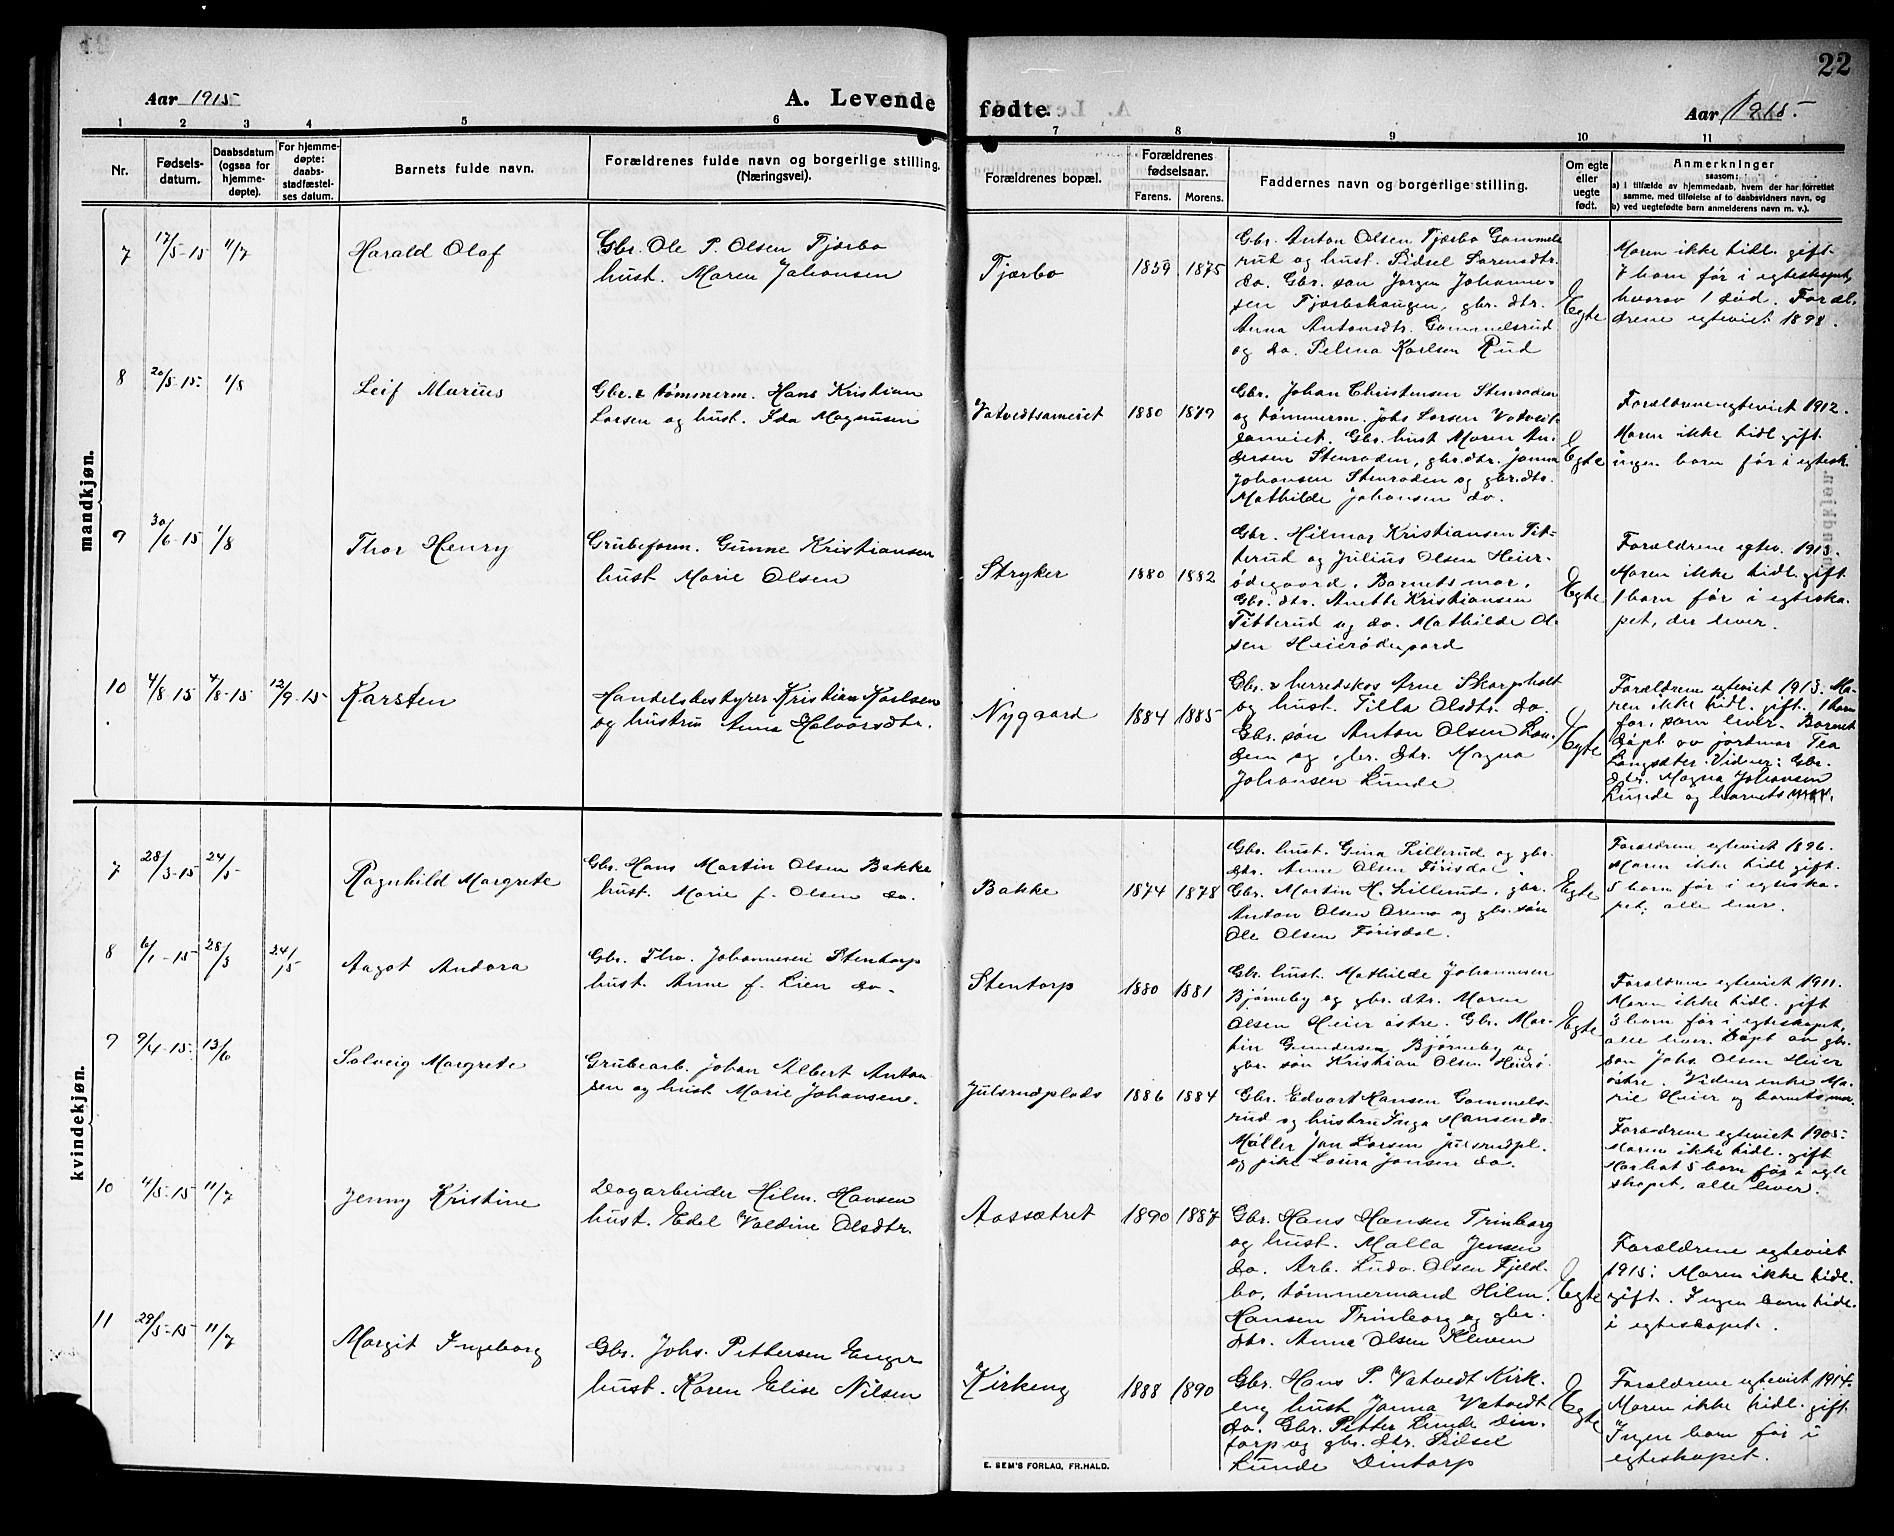 22
Aar 1915
A. Levende
fødte.
Aar 1915.
1 2 3 4 5 6
7 8 9 10 11
Nr.
Fødsels-
datum.
Daabsdatum
(ogsaa for
hjemme-
døpte).
For hjemme-
døpte:
daabs-
stadfæstel-
ses datum.
Barnets fulde navn.
Forældrenes fulde navn og borgerlige stilling.
(Næringsvei).
Forældrenes bopæl.
Forældrenes
fødselsaar.
Farens. Morens.
Faddernes navn og borgerlige stilling.
Om egte
eller
uegte
født.
Anmerkninger
saasom:
a) i tilfælde av hjemmedaab, hvem der har forrettet
samme, med tilføielse af to daabsvidners navn, og
b) ved uegtefødte barn anmelderens navn m. v.).
mandkjøn.
7
17/5-15
11/7
Harald Olaf
Gbr. Ole P. Olsen Tjærbo
hust. Maren Johansen
Tjærbo
1859 1875
Gbr. Anton Olsen Tjærbo Gammels
rud og hust. Sidsel Sørensdtr.
do. Gbr. søn Jørgen Johanne-
sen Tjærbohaugen, gbr. dtr.
Anna Antonsdtr. Gammelsrud
og do. Selma Karlsen Rud
Egte
Moren ikke tidl. gift.
7 born før i egteskapet,
hvorav 1 død. Foræl-
drene egteviet 1898.
8
20/5-15.
1/8
Leif Marius
Gbr. & tømmerm. Hans Kristian
Larsen og hust. Ida Magnusen
Vatvedtsameiet
1880 1879
Gbr. Johan Christensen Stenroden
og tømmerm. Johs Larsen Vatvedt-
sameiet. Gbr. hust Maren An-
dersen Stenroden, gbr. dtr. Janna
Johansen Stenroden og gbr. dtr.
Mathilde Johansen do.
Egte
Forældrene egteviet 1912.
Moren ikke tidl gift.
ingen born før i egtesk.
9
30/6-15
1/8
Thor Henry
Grubeform. Gunne Kristiansen
hust Marie Olsen
Stryker
1880 1882
Gbr. Hilmar Kristiansen Tit-
terud og Julius Olsen Heier-
ødegaard. Barnets mor.
Gbr. dtr. Anette Kristiansen
Titterud og do. Mathilde Ol-
sen Heierødegaard
Egte
Forældrene egtev. 1913.
Moren ikke tidl. gift
1 born før i egteska-
pet, der lever.
10
4/8-15
4/8-15
12/9-15
Karsten
Handelsbestyrer Kristian Karlsen
og hustru Anna Halvorsdtr.
Nygaard
1884 1885
Gbr. & herredskas Arne Skarpholt
og hust. Tilla Olsdtr. do.
Gbr. søn Anton Olsen Lun-
dem og gbr. dtr. Magna
Johansen Lunde
Egte
Forældrene egteviet 1913. Mo-
ren ikke tidl. gift. 1 born
før, som lever. Barnet
døpt av jordmor Tea
Langsæter. Vidner: Gbr.
dtr. Magna Johansen
Lunde og barnets mor.
kvindekjøn.
7
28/3-15
24/5
Ragnhild Margrete
Gbr. Hans Martin Olsen Bakke
hust. Marie f. Olsen do.
Bakke
1874 1878
Gbr. hust. Gina Lillerud og gbr.
dtr. Anne Olsen Førisdal.
Gbr. Martin H. Lillerud, gbr.
Anton Olsen Oremo og gbr. søn
Ole Olsen Førisdal.
Egte
Forældrene egteviet 1896.
Moren ikke tidl. gift.
5 born før i egteska-
pet; alle lever.
8
6/1-15
28/3
24/15
Aagot Andora
Gbr. Thv. Johannesen Stentorp
hust. Anne f. Lien do.
Stentorp
1880 1881
Gbr. hust. Mathilde Johannesen
Bjørneby og gbr. dtr. Maren
Olsen Heier østre. Gbr. Mar-
tin Gundersen Bjørneby og
gbr. søn Kristian Olsen Heierø-
Egte
Forældrene egteviet 1911.
Moren ikke tidl. gift
3 born før i egteskapet,
alle lever. Døpt av gbr.
søn Johs Olsen Heier
østre. Vidner enke Ma-
rie Heier og barnets mor.
9
9/4-15.
13/6
Solveig Margrete
Grubearb. Johan Albert Anton-
sen og hust Marie Johansen.
Julsrudplads
1886 1884
Gbr. Edvart Hansen Gammels-
rud og hustru Inga Hansen do.
Møller Jan Larsen Julsrudpl.
og pike Laura Jansen do.
Forældrene egteviet 1905.
Moren ikke tidl. gift
Har hat 5 born før i egte
skapet, alle lever.
10
4/5-15
11/7
Jenny Kristine
Dagarbeider Hilm. Hansen
hust. Edel Valdine Olsdtr.
Aassætret
1890 1887
Gbr. Hans Hansen Trinborg
og hust. Malla Jensen
do. Arb. Ludv. Olsen Fjeld-
bo, tømmermand Hilm.
Hansen Trinborg og gbr.
dtr. Anna Olsen Kleven
Egte
Forældrene egteviet
1915. Moren ikke tidl.
gift. Ingen born tidl.
i egteskapet.
11
29/5-15
11/7
Margit Ingeborg
Gbr. Johs. Pettersen Enger
hust. Karen Elise Nilsen
Kirkeng
1888 1890
Gbr. Hans P. Vatvedt Kirk-
eng hust Janna Vatvedt
do. Gbr. Petter Lunde Din-
torp og gbr. dtr. Sidsel
Lunde Dintorp
Egte
Forældrene egteviet 1914.
Moren ikke tidl. gift
Ingen born før i
egteskapet.
E. SEM'S FORLAG, FR.HALD.